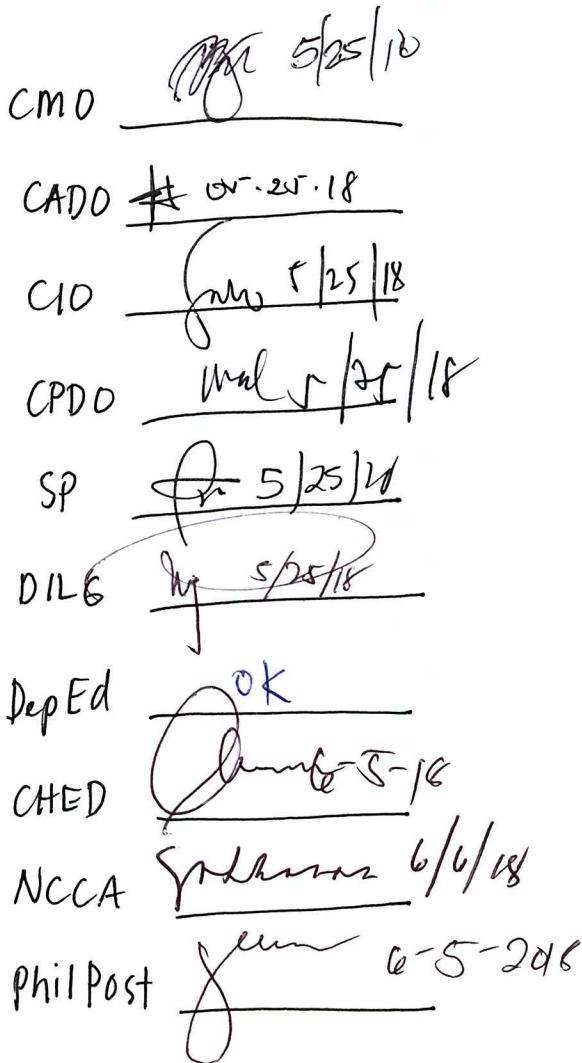 CMO 5/25/18
CADO 05.25.18
CIO 5/25/18
CPDO 5/25/18
SP 5/25/18
DILG 5/25/18
DepEd OK
CHED 6-5-18
NCCA 6/6/18
PhilPost 6-5-2018